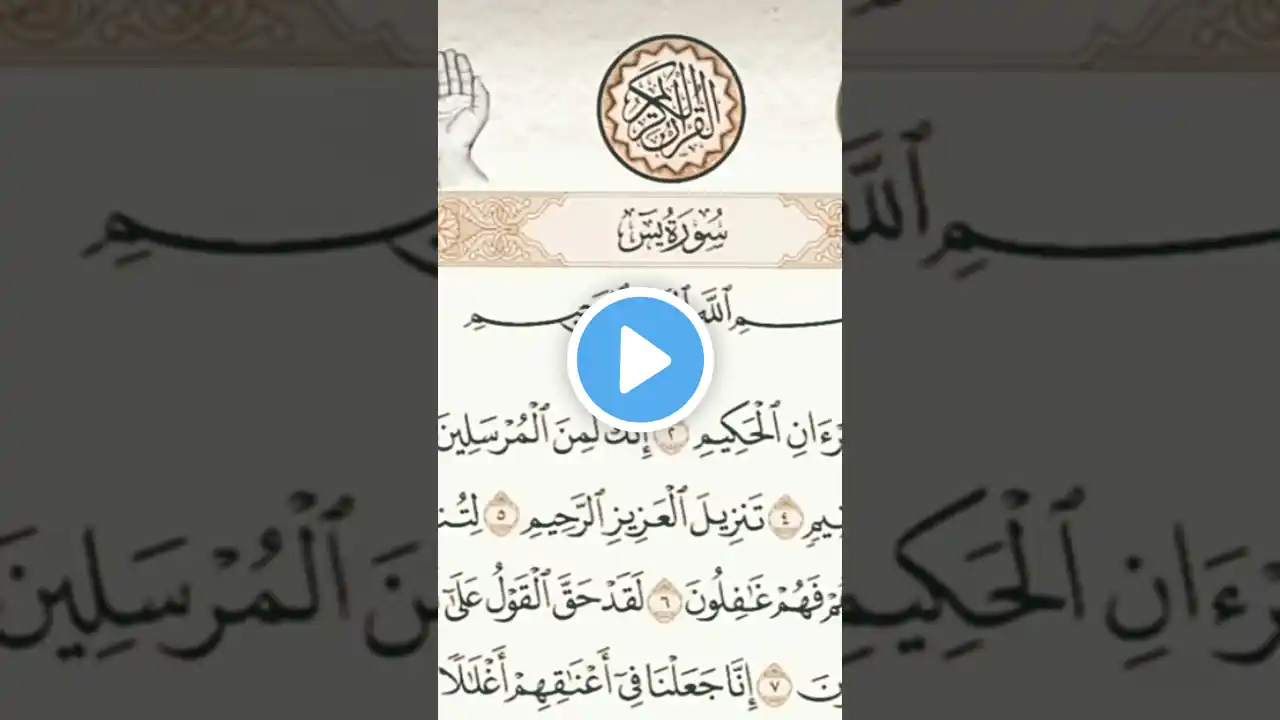 القرآن الكريم
سُورَةُ يسٓ
ٱللَّهِ
رْءَانِ ٱلْحَكِيمِ ٢ إِنَّكَ لَمِنَ ٱلْمُرْسَلِينَ
تَنزِيلَ ٱلْعَزِيزِ ٱلرَّحِيمِ ٥ ٤
فَهُمْ غَٰفِلُونَ ٦ لَقَدْ حَقَّ ٱلْقَوْلُ عَلَىٰٓ
٧ إِنَّا جَعَلْنَا فِىٓ أَعْنَٰقِهِمْ أَغْلَٰلًا